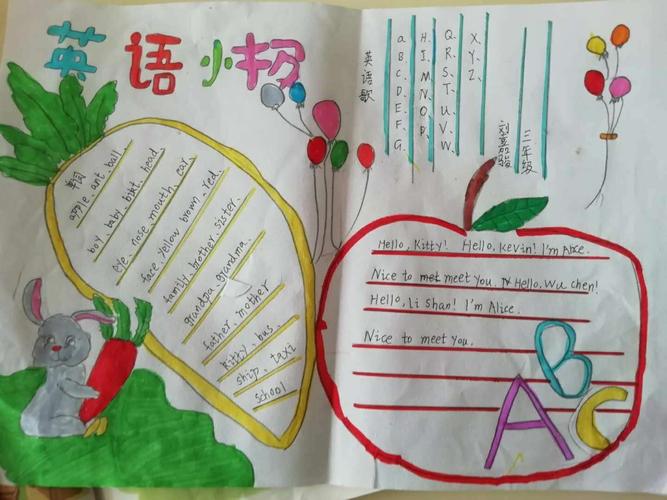 英语小报
英语歌
a、B、C、D、E、F、G、
H、I、M、N、O、P、
Q、R、S、T、U、V、W、
X、Y、Z、
三年级
单词
apple、ant、ball、
boy、baby、bikt、head、
eye、nose、mouth、ear、
face、yellow、brown、red、
family、brother、sister、
grandpa、grandma、
father、mother
kitty、bus、
ship、taxi
school
Hello, Kitty! Hello, Kevin! I'm Alice.
Nice to meet you. Hello, Wu chen!
Hello, Li Shao! I'm Alice.
Nice to meet you.
A B C